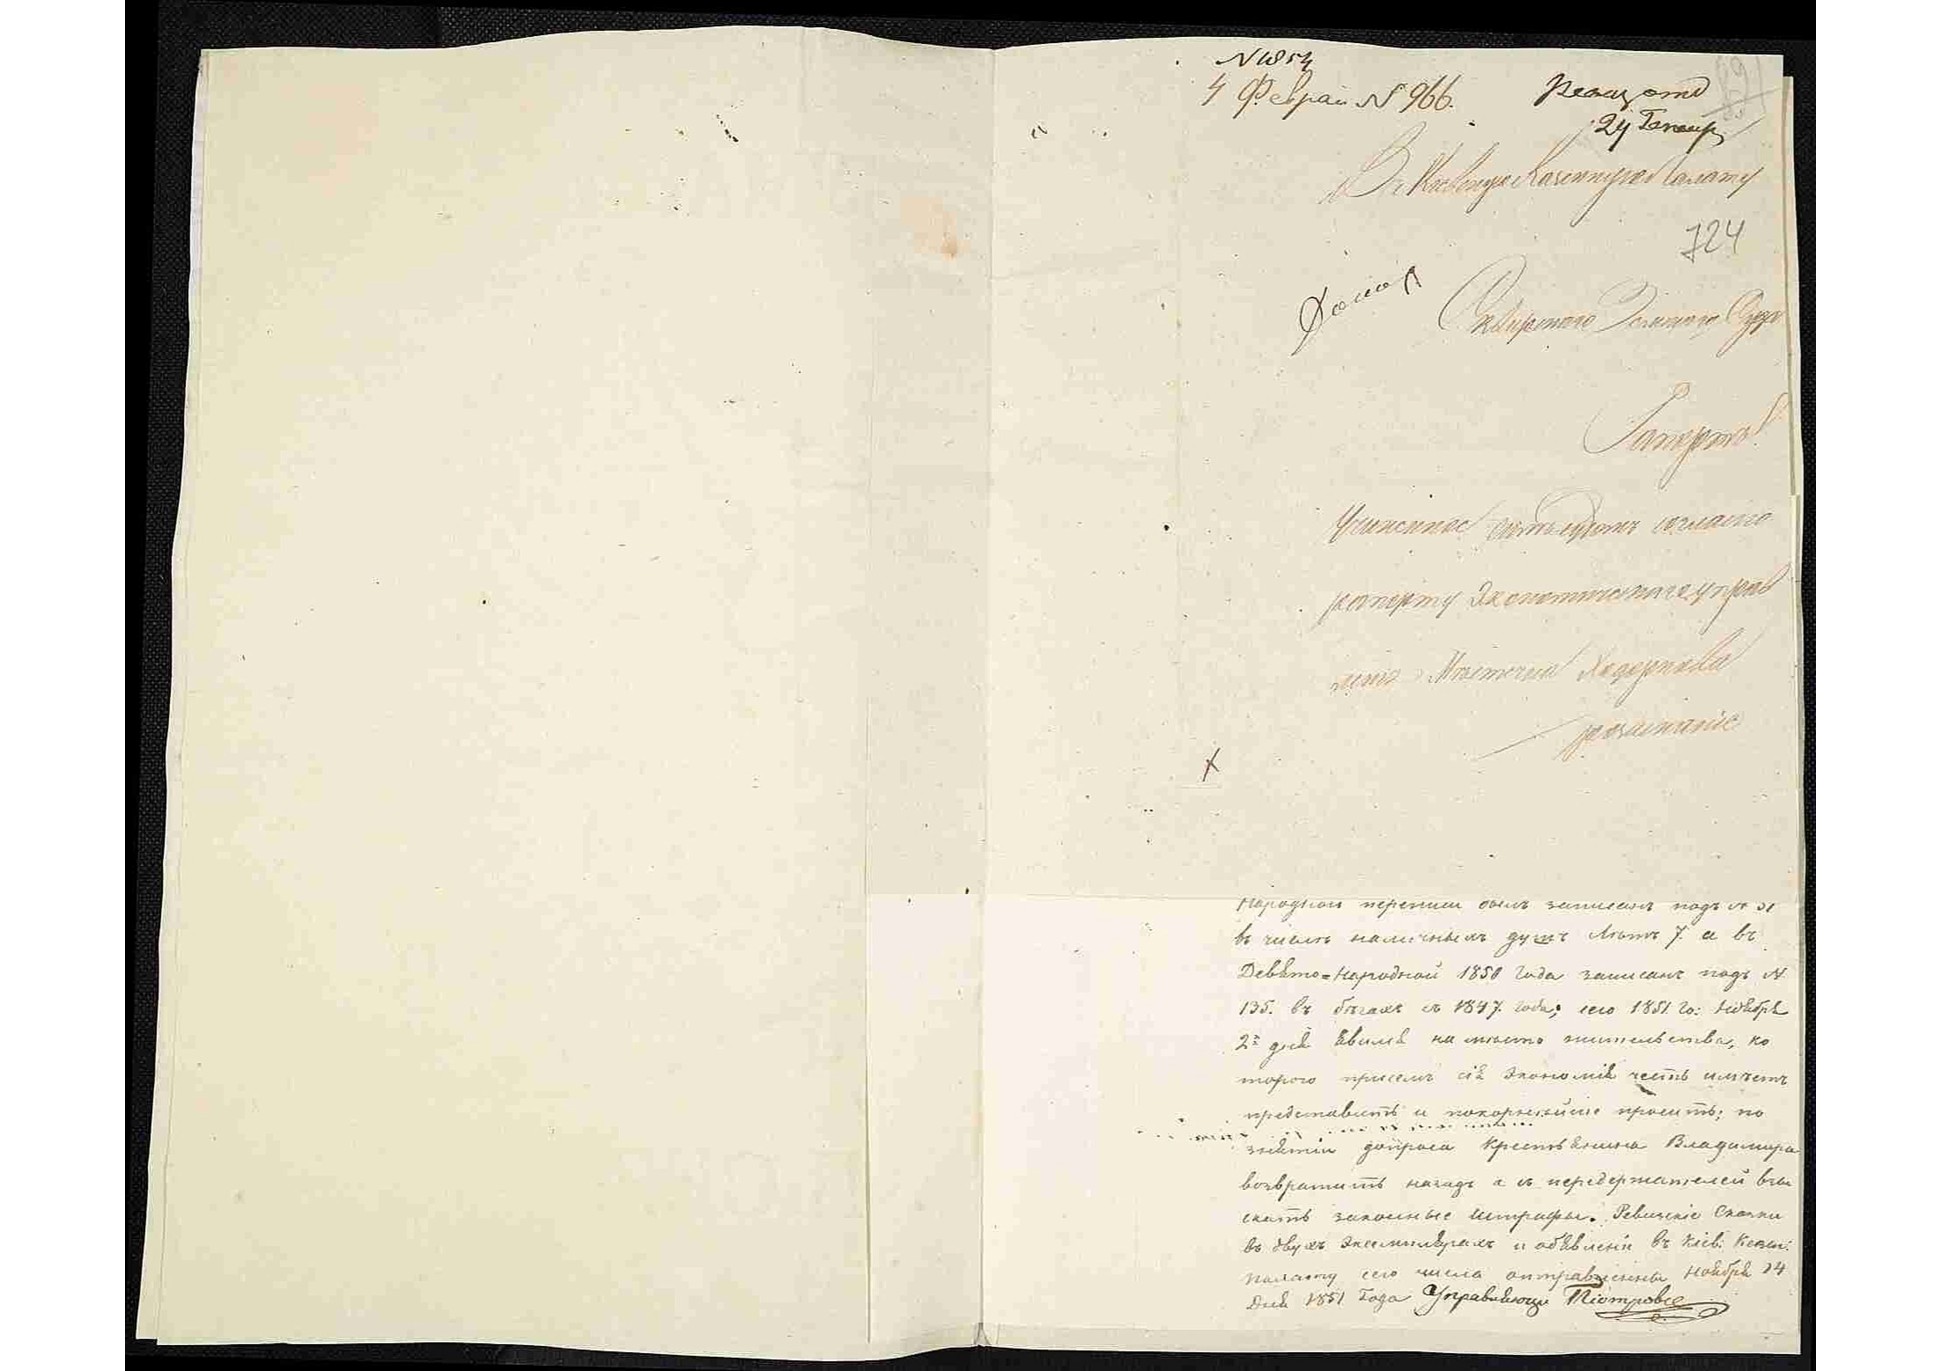 N 1854
4 Феврал N 966.
24 Генвар
Въ Кіевскую Казенную Палату
724
Сквирского Земского Суда
Рапортъ
Учиненное согласно
рапорту Экономическаго управ
ленія Мѣстечка Ходоркова
Народной переписи былъ записанъ подъ N
въ числѣ наличныхъ душъ лѣтъ 7. а въ
Девято=Народной 1850 года записанъ подъ N
135. въ бѣгахъ съ 1847. года; сего 1851 го: Ноября
2го дня явился на мѣсто жительства, ко
торого присемъ сія Экономія честь имѣетъ
представить и покорнѣйше просить; по
снятіи допроса Крестьянина Владимира
возвратить назадъ а съ передержателей взы
скать законные штрафы. Ревизскіе Сказки
въ двухъ Экземплярахъ и объявленія въ Кіев: Казен:
палату сего числа отправленны Ноября 14
Дня 1851 Года Управляющи